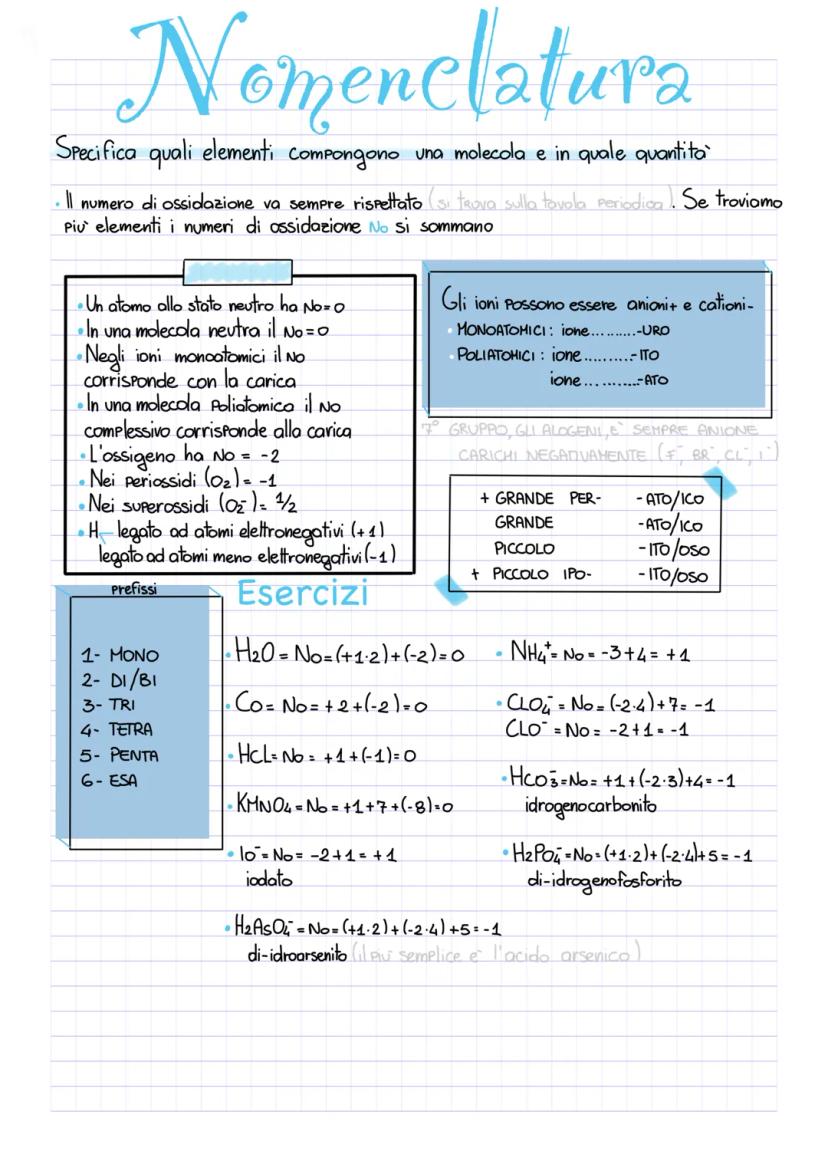 Nomenclatura
Specifica quali elementi compongono una molecola e in quale quantità
• Il numero di ossidazione va sempre rispettato (si trova sulla tavola periodica). Se troviamo
più elementi i numeri di ossidazione No si sommano
• Un atomo allo stato neutro ha No=0
• In una molecola neutra il No=0
• Negli ioni monoatomici il No
corrisponde con la carica
• In una molecola Poliatomica il No
complessivo corrisponde alla carica
• L'ossigeno ha No = -2
• Nei periossidi (O₂)= -1
• Nei superossidi (O₂⁻)= ½
• H legato ad atomi elettronegativi (+1)
legato ad atomi meno elettronegativi (-1)
Gli ioni possono essere anioni+ e cationi-
• MONOATOMICI: ione..........-URO
• POLIATOMICI: ione..........-ITO
ione..........-ATO
7° GRUPPO, GLI ALOGENI, E' SEMPRE ANIONE
CARICHI NEGATIVAMENTE (F⁻, BR⁻, CL⁻, I⁻)
+ GRANDE PER- -ATO/ICO
GRANDE -ATO/ICO
PICCOLO -ITO/OSO
+ PICCOLO IPO- -ITO/OSO
prefissi
1- MONO
2- DI/BI
3- TRI
4- TETRA
5- PENTA
6- ESA
Esercizi
• H₂O = No=(+1·2)+(-2)=0
• CO= No= +2+(-2)=0
• HCL= No = +1+(-1)=0
• KMNO₄ = No = +1+7+(-8)=0
• IO⁻= No= -2+1= +1
iodato
• H₂AsO₄⁻ = No=(+1·2)+(-2·4)+5=-1
di-idroarsenito (il più semplice è l'acido arsenico)
• NH₄⁺= No = -3+4= +1
• CLO₄⁻ = No= (-2·4)+7= -1
CLO⁻ = No = -2+1= -1
• HCO₃⁻=No= +1+(-2·3)+4=-1
idrogenocarbonito
• H₂PO₄⁻=No=(+1·2)+(-2·4)+5=-1
di-idrogenofosforito